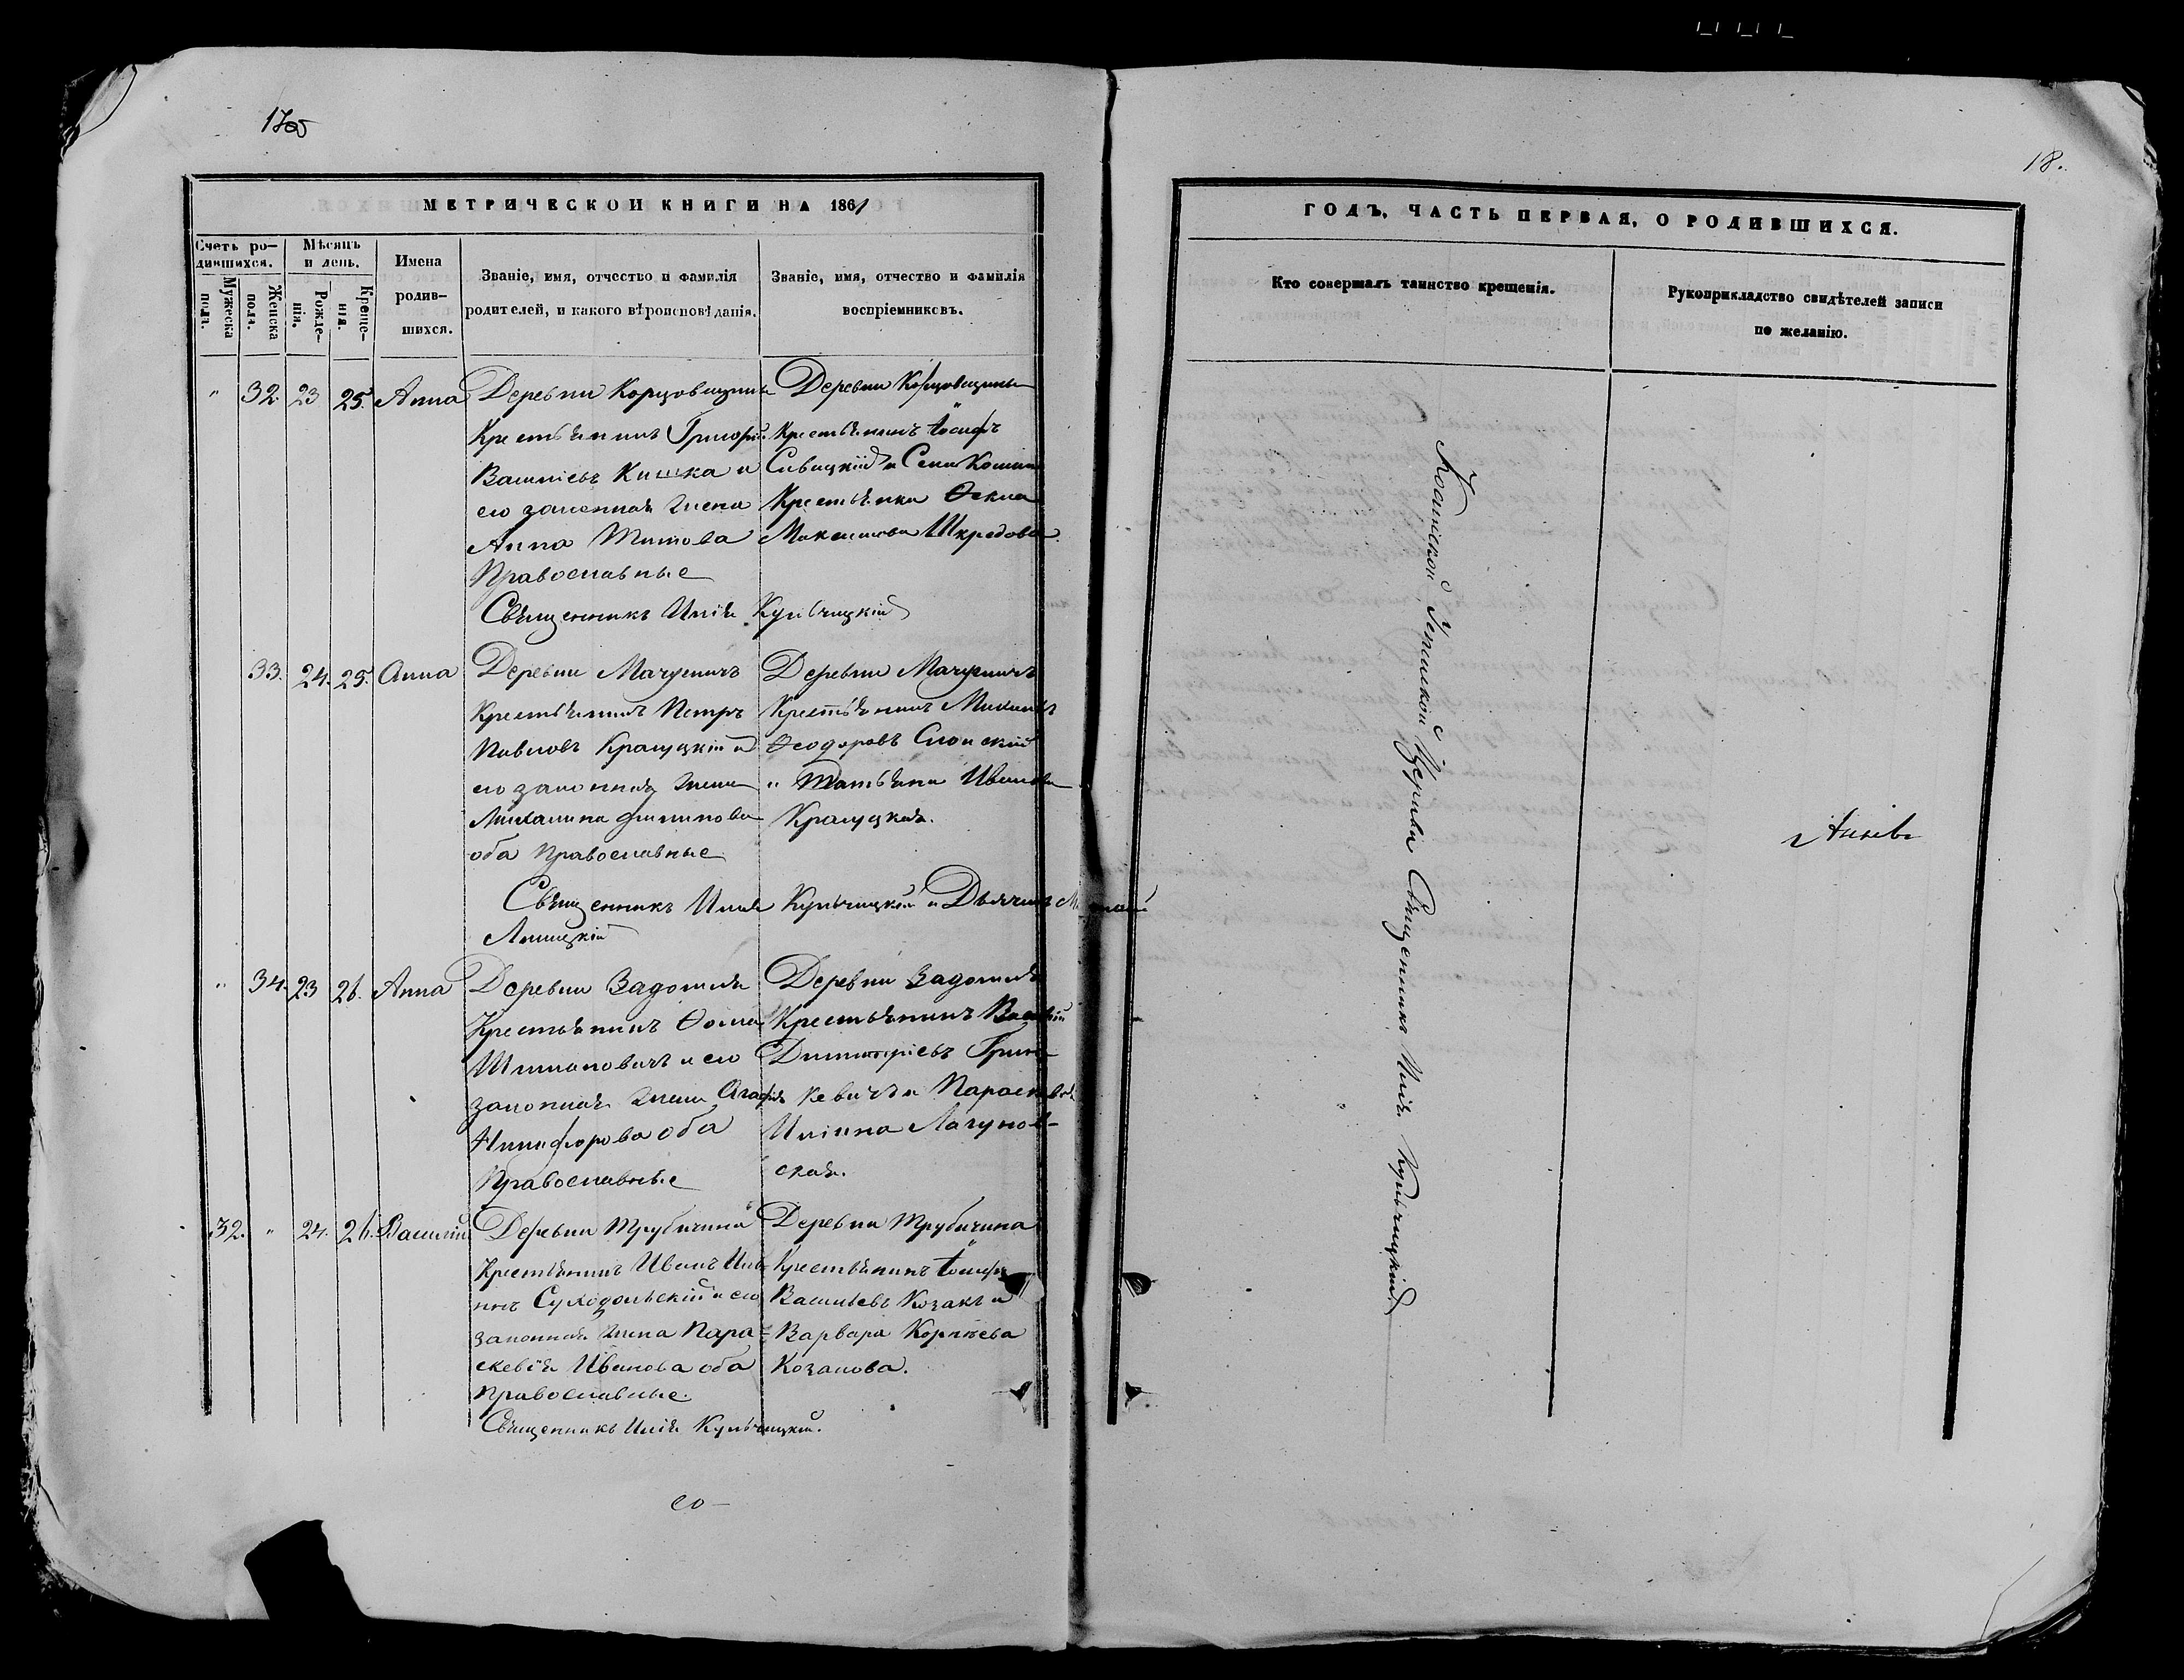 18.
МЕТРИЧЕСКОЙ КНИГИ НА 1861
ГОДЪ, ЧАСТЬ ПЕРВАЯ, О РОДИВШИХСЯ.
Счетъ ро-
дившихся.
Мужеска
пола.
Женска
пола.
Мѣсяцъ
и день.
Рожде-
нія.
Креще-
нія.
Имена
родив-
шихся.
Званіе, имя, отчество и фамилія
родителей, и какого вѣроисповѣданія.
Званіе, имя, отчество и фамилія
воспріемниковъ.
Кто совершалъ таинство крещенія.
Рукоприкладство свидѣтелей записи
по желанію.
" 32. 23 25. Анна
Деревни Корцовщизны
Крестьянинъ Григорій
Василіевъ Кишка и
его законная жена
Анна Титова
Православные
Деревни Корцовщизны
Крестьянинъ Іосифъ
Савицкій и
Крестьянка Ѳекла
Максимова Шкредова.
Священникъ Илія Кульчицкій
33. 24. 25. Анна
Деревни
Крестьянинъ Петръ
Павловъ и
его законная жена
Михалина Филипова
оба Православные
Деревни
Крестьянинъ
Ѳеодоровъ Слонскій
и Татьяна Иванова
Священникъ Илія Кульчицкій и Дьячекъ
" 34. 23 26. Анна
Деревни Задомля
Крестьянинъ Ѳома
Шимановичъ и его
законная жена Агафія
Никифорова оба
Православные
Деревни Задомля
Крестьянинъ Василій
Димитріевъ Грин-
кевичъ и Параскевія
Иліина Лагунов-
ская.
32. " 24. 26. Василій
Деревни Трубичина
Крестьянинъ Иванъ Ильи-
нъ Суходольскій и его
законная жена Пара-
скевія Иванова оба
Православные.
Деревни Трубичина
Крестьянинъ Іосифъ
Васильевъ Козакъ и
Варвара Корнѣева
Козакова.
Священникъ Илія Кульчицкій.
Церкви Священникъ Илія Кульчицкій